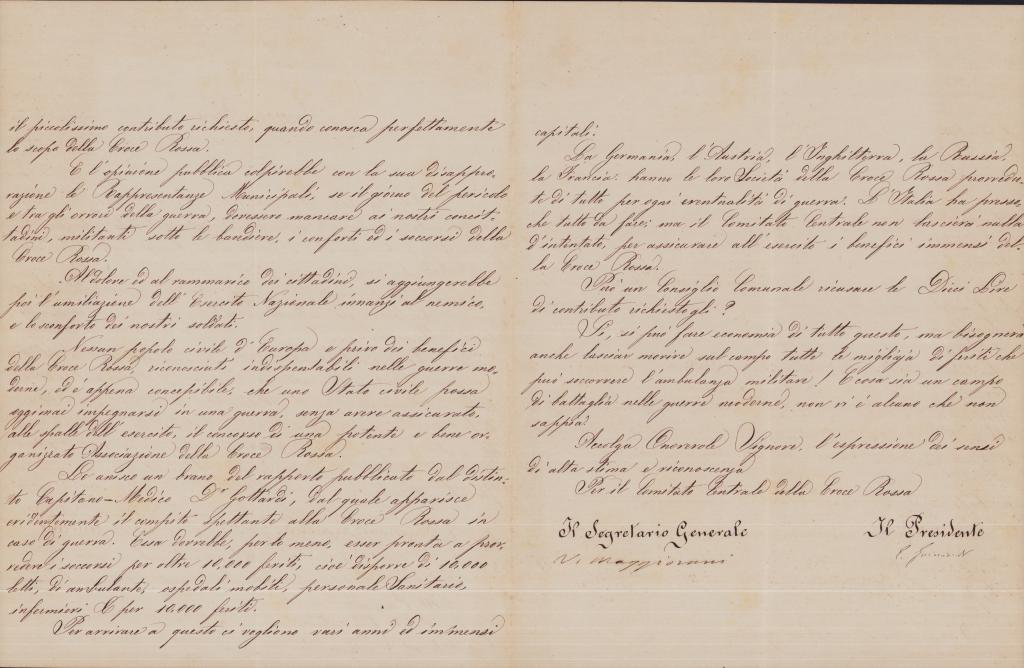 il piccolissimo contributo richiesto, quando conosca perfettamente
lo scopo della Croce Rossa.
E l'opinione pubblica colpirebbe con la sua disappro,
vazione le Rappresentanze Municipali, se il giorno del pericolo
e tra gli orrori della guerra, dovessero mancare ai nostri concit-
tadini, militanti sotto le bandiere, i conforti ed i soccorsi della
Croce Rossa.
Al dolore ed al rammarico dei cittadini, si aggiungerebbe
poi l'umiliazione dell'Esercito Nazionale innanzi al nemico,
e lo sconforto dei nostri soldati.
Nessun popolo civile d'Europa è privo dei benefici
della Croce Rossa, riconosciuti indispensabili nelle guerre mo-
derne, ed è appena concepibile, che uno Stato civile possa
oggimai impegnarsi in una guerra, senza avere assicurato,
alle spalle dell'esercito, il concorso di una potente e bene or,
ganizzata Associazione della Croce Rossa.
Le unisco un brano del rapporto pubblicato dal distin-
to Capitano-Medico Dr. Gottardi, dal quale apparisce
evidentemente il compito spettante alla Croce Rossa in
caso di guerra. Essa dovrebbe, per lo meno, esser pronta a prov,
vedere i soccorsi per oltre 10,000 feriti, cioè disporre di 10,000
letti, di ambulanti, ospedali mobili, personale Sanitario,
infermieri E per 10,000 feriti.
Per arrivare a questo ci vogliono vari anni ed immensi
capitali.
La Germania, l'Austria, l'Inghilterra, la Russia,
la Francia hanno le loro Società della Croce Rossa provvedu,
te di tutto per ogni eventualità di guerra. L'Italia ha presso,
che tutto da fare; ma il Comitato Centrale non lascierà nulla
d'intentato, per assicurare all'esercito i benefici immensi del-
la Croce Rossa.
Può un Consiglio Comunale ricusare le Dieci Lire
di contributo richiestogli?
Sì, si può fare economia di tutto questo, ma bisognerà
anche lasciar morire sul campo tutte le migliaja di feriti che
può soccorrere l'ambulanza militare! E cosa sia un campo
di battaglia nelle guerre moderne, non vi è alcuno che non
sappia.
Accolga Onorevole Signore, l'espressione dei sensi
di alta stima e riconoscenza
Per il Comitato Centrale della Croce Rossa
Il Segretario Generale
Il Presidente
V. Maggiorani